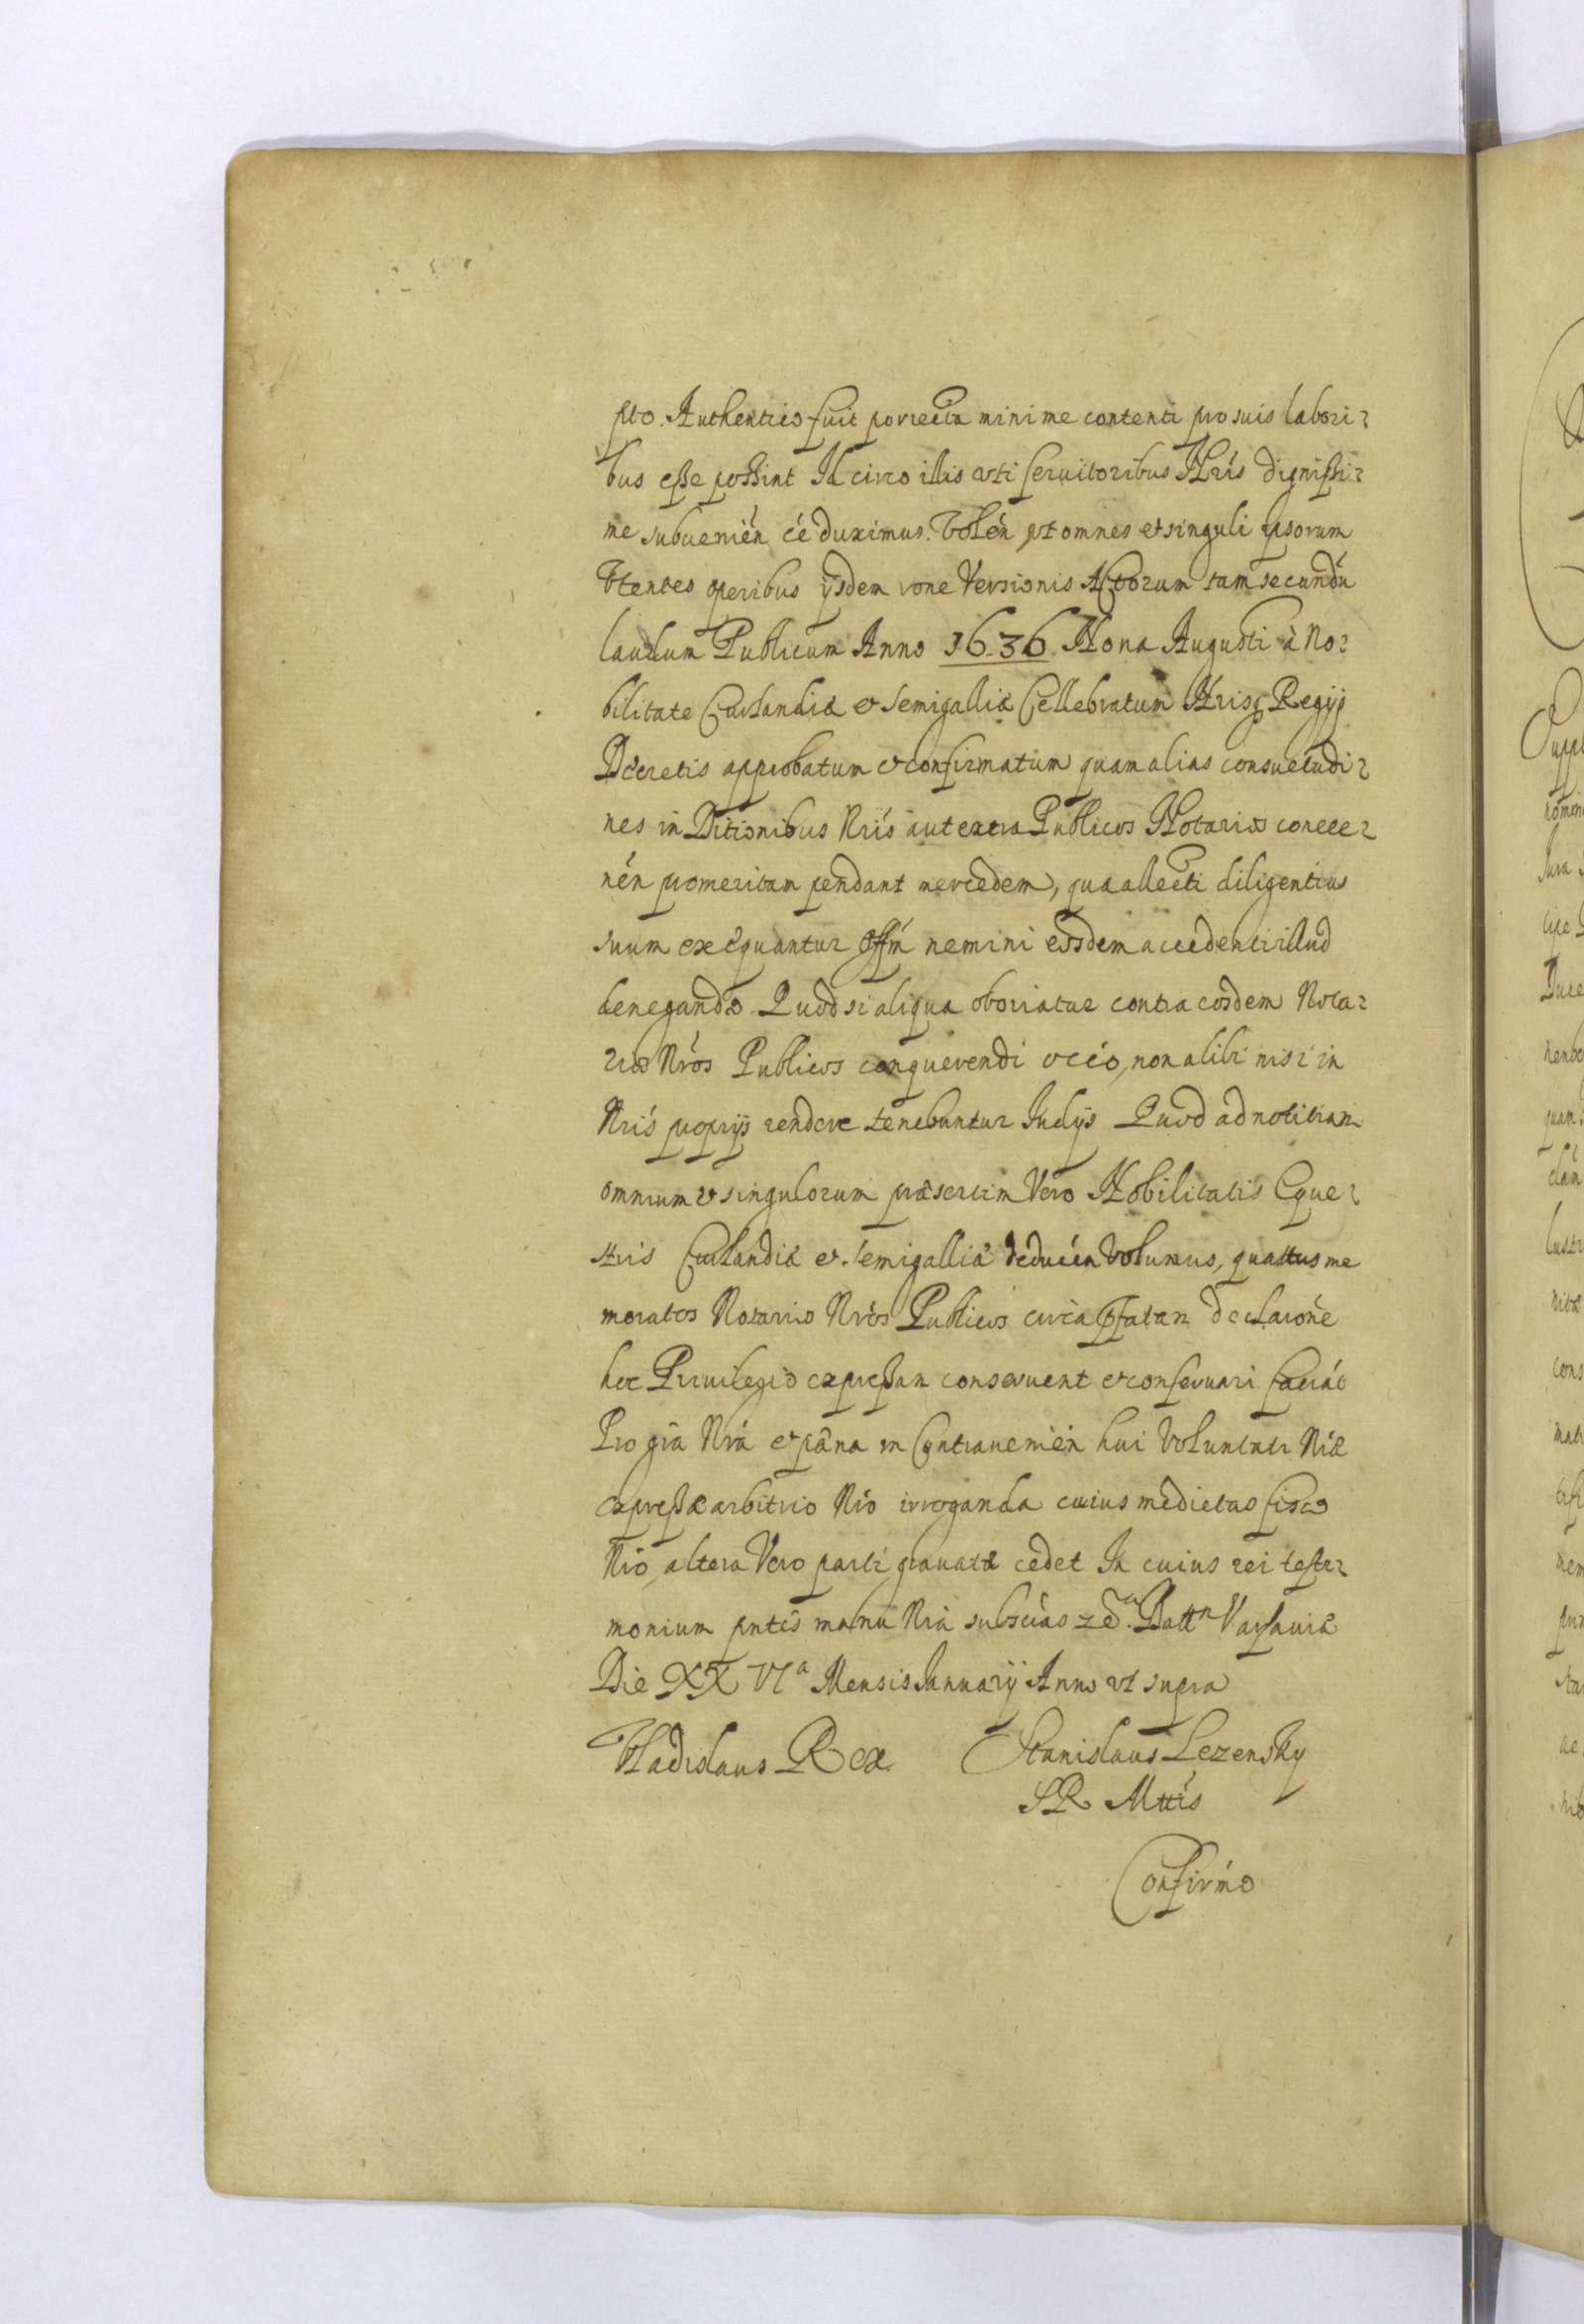 pto. Authentico fuit porrecta minime contenti pro suis labori⸗
bus esse possint Id circo illis uti seruitoribus Nris dignissi⸗
me subuenién cé duximus. Volén ut omnes et singuli ipsorum
Vtentes operibus ijsdem rone Versionis Actorum tam secundú
laudum Publicum Anno 1636 Nona Augusti à No⸗
bilitate Curlandiæ et Semigalliæ Cellebratum Nrisq Regijs
Decretis approbatum et confirmatum quam alias consuetudi⸗
nes in Ditionibus Nris aut extra Publicos Notarios concer⸗
nén promeritam pendant mercedem, qua allecti diligentius
suum exequantur Offm nemini eosdem accedenti illud
denegando. Quod si aliqua oboriatur contra eosdem Nota⸗
rios Nros Publicos conquerendi occó, non alibi nisi in
Nris proprijs rendere tenebuntur Iudijs Quod ad notitiam
omnium et singulorum præsertim Vero Nobilitatis Eque⸗
stris Curlandiæ et Semigalliæ deducén Volumus, quattus me
moratos Notarios Nros Publicos circa pfatam declaroné
hoc Priuilegio expressam conseruent et conseruari faciát
Pro gra Nra et pæna in Contrauenién hui Voluntati Nræ
expressæ arbitrio Nro irroganda cuius medietas fisco
Nro, altera Vero parti grauatæ cedet In cuius rei testi⸗
monium pntes manu Nra subscias Datt Varsauiæ
Die XX VIa Mensis Ianuarij Anno ut supra
Vladislaus Rex Stanislaus Lezensky
SR Mttis
Confirmo